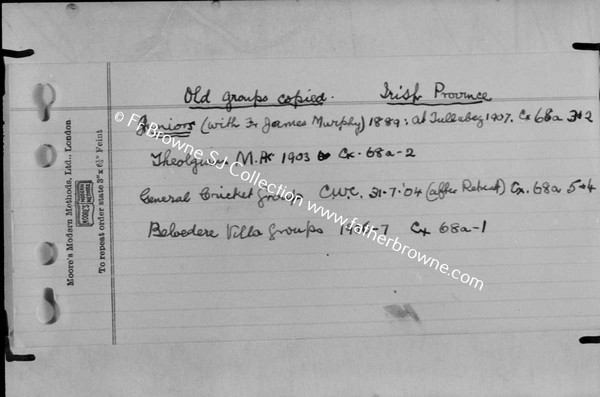 Old groups copied. Irish Province
Juniors (with Fr James Murphy) 1889; at Tullabeg 1907. Cx 68a 3+2
M.Pk 1903 Cx. 68a-2
General Cricket Group C.W.C. 31-7-'04 (after Retreat) Cx. 68a 5+4
Belvedere Villa Groups 1906-7 Cx 68a-1
Moore's Modern Methods, Ltd., London
To repeat order state 3" x 6½" Feint
© Fr Browne S.J. Collection www.fatherbrowne.com